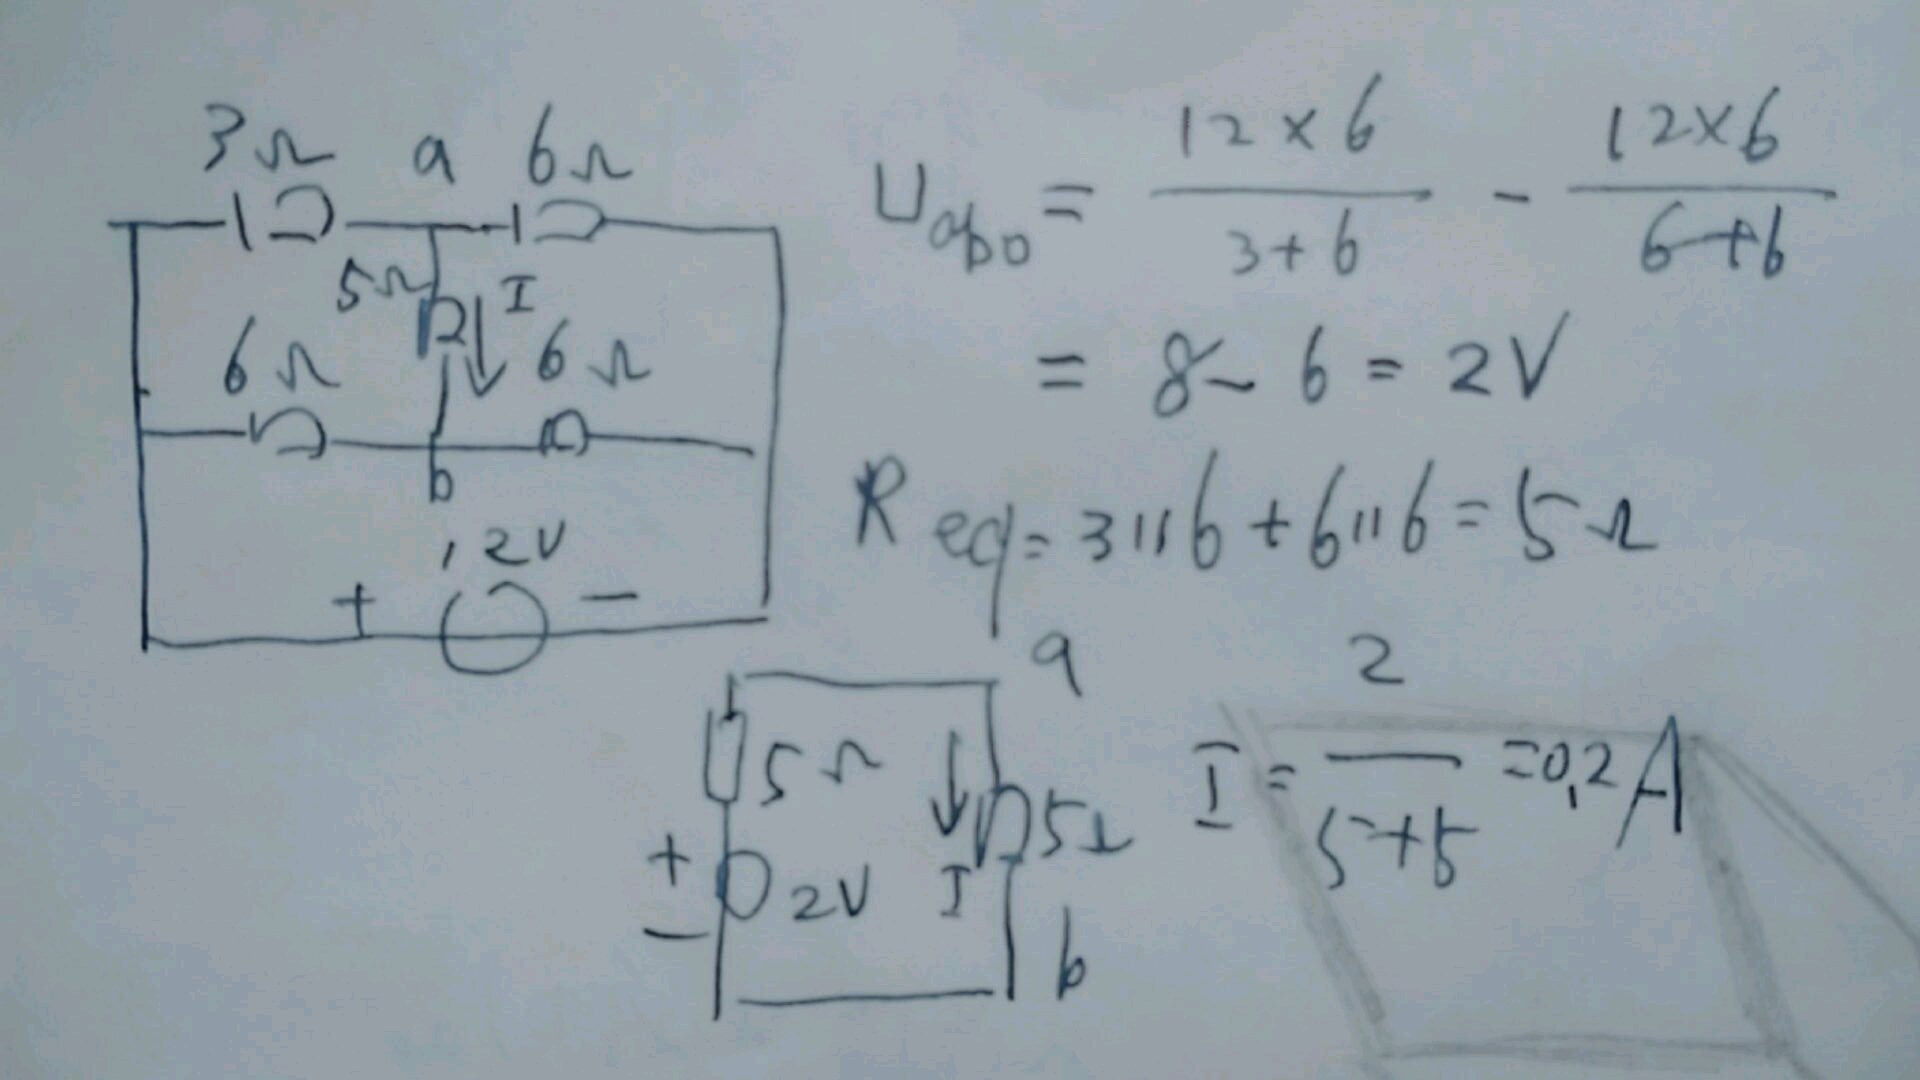 3Ω a 6Ω
5Ω I
6Ω 6Ω
b
12V
+ −
Uabo = 12×6/3+6 − 12×6/6+6
= 8 − 6 = 2V
Req = 3||6 + 6||6 = 5Ω
a
5Ω 5Ω
+ 2V I
−
b
I = 2/5+5 = 0,2A